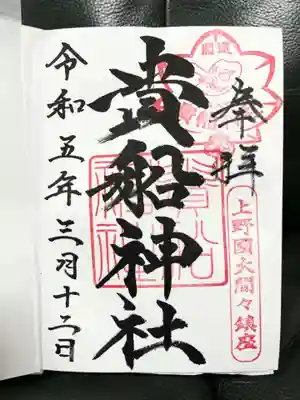 奉拝
上野國大間々鎮座
貴船神社
貴船神社
令和五年三月十二日